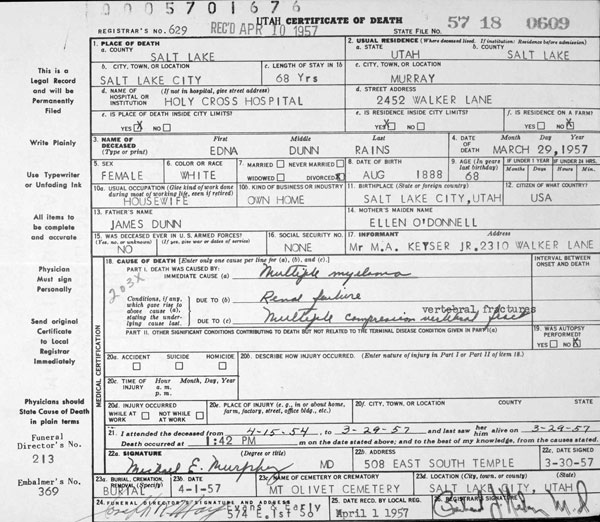 0005701676
UTAH CERTIFICATE OF DEATH 57 18 0609
REGISTRAR'S NO. 629 REC'D APR 10 1957 STATE FILE NO.
1. PLACE OF DEATH 2. USUAL RESIDENCE (Where deceased lived. If institution: Residence before admission)
a. COUNTY SALT LAKE a. STATE UTAH b. COUNTY SALT LAKE
b. CITY, TOWN, OR LOCATION SALT LAKE CITY c. LENGTH OF STAY IN 1b 68 Yrs c. CITY, TOWN, OR LOCATION MURRAY
d. NAME OF HOSPITAL OR INSTITUTION (If not in hospital, give street address) HOLY CROSS HOSPITAL d. STREET ADDRESS 2452 WALKER LANE
e. IS PLACE OF DEATH INSIDE CITY LIMITS? YES X NO e. IS RESIDENCE INSIDE CITY LIMITS? YES X NO f. IS RESIDENCE ON A FARM? YES NO X
3. NAME OF DECEASED (Type or print) First EDNA Middle DUNN Last RAINS 4. DATE OF DEATH Month Day Year MARCH 29, 1957
5. SEX FEMALE 6. COLOR OR RACE WHITE 7. MARRIED NEVER MARRIED WIDOWED DIVORCED X 8. DATE OF BIRTH AUG 1888 9. AGE (In years last birthday) 68 IF UNDER 1 YEAR Months Days IF UNDER 24 HRS. Hours Min.
10a. USUAL OCCUPATION (Give kind of work done during most of working life, even if retired) HOUSEWIFE 10b. KIND OF BUSINESS OR INDUSTRY OWN HOME 11. BIRTHPLACE (State or foreign country) SALT LAKE CITY, UTAH 12. CITIZEN OF WHAT COUNTRY? USA
13. FATHER'S NAME JAMES DUNN 14. MOTHER'S MAIDEN NAME ELLEN O'DONNELL
15. WAS DECEASED EVER IN U.S. ARMED FORCES? (Yes, no, or unknown) (If yes, give war or dates of service) NO 16. SOCIAL SECURITY NO. NONE 17. INFORMANT Address Mr M.A. KEYSER JR, 2310 WALKER LANE
18. CAUSE OF DEATH [Enter only one cause per line for (a), (b), and (c).] INTERVAL BETWEEN ONSET AND DEATH
PART I. DEATH WAS CAUSED BY:
IMMEDIATE CAUSE (a) Multiple myeloma
203X
Conditions, if any, which gave rise to above cause (a), stating the underlying cause last.
DUE TO (b) Renal failure
vertebral fractures
DUE TO (c) Multiple compression vertebral fract
PART II. OTHER SIGNIFICANT CONDITIONS CONTRIBUTING TO DEATH BUT NOT RELATED TO THE TERMINAL DISEASE CONDITION GIVEN IN PART I(a) 19. WAS AUTOPSY PERFORMED? YES NO X
MEDICAL CERTIFICATION
20a. ACCIDENT SUICIDE HOMICIDE 20b. DESCRIBE HOW INJURY OCCURRED. (Enter nature of injury in Part I or Part II of item 18.)
20c. TIME OF INJURY Hour Month, Day, Year a. m. p. m.
20d. INJURY OCCURRED WHILE AT WORK NOT WHILE AT WORK 20e. PLACE OF INJURY (e. g., in or about home, farm, factory, street, office bldg., etc.) 20f. CITY, TOWN, OR LOCATION COUNTY STATE
21. I attended the deceased from 4-15-54, to 3-29-57 and last saw her him alive on 3-29-57
Death occurred at 1:42 PM m on the date stated above; and to the best of my knowledge, from the causes stated.
22a. SIGNATURE (Degree or title) Michael E. Murphy MD 22b. ADDRESS 508 EAST SOUTH TEMPLE 22c. DATE SIGNED 3-30-57
23a. BURIAL, CREMATION, REMOVAL (Specify) BURIAL 23b. DATE 4-1-57 23c. NAME OF CEMETERY OR CREMATORY MT OLIVET CEMETERY 23d. LOCATION (City, town, or county) (State) SALT LAKE CITY, UTAH
24. FUNERAL DIRECTOR'S SIGNATURE AND ADDRESS Evans & Early 574 E. 1st So 25. DATE RECD. BY LOCAL REG. April 1 1957 26. REGISTRAR'S SIGNATURE M.D.
This is a
Legal Record
and will be
Permanently
Filed
Write Plainly
Use Typewriter
or Unfading Ink
All items to
be complete
and accurate
Physician
Must sign
Personally
Send original
Certificate
to Local
Registrar
Immediately
Physicians should
State Cause of Death
in plain terms
Funeral
Director's No.
213
Embalmer's No.
369